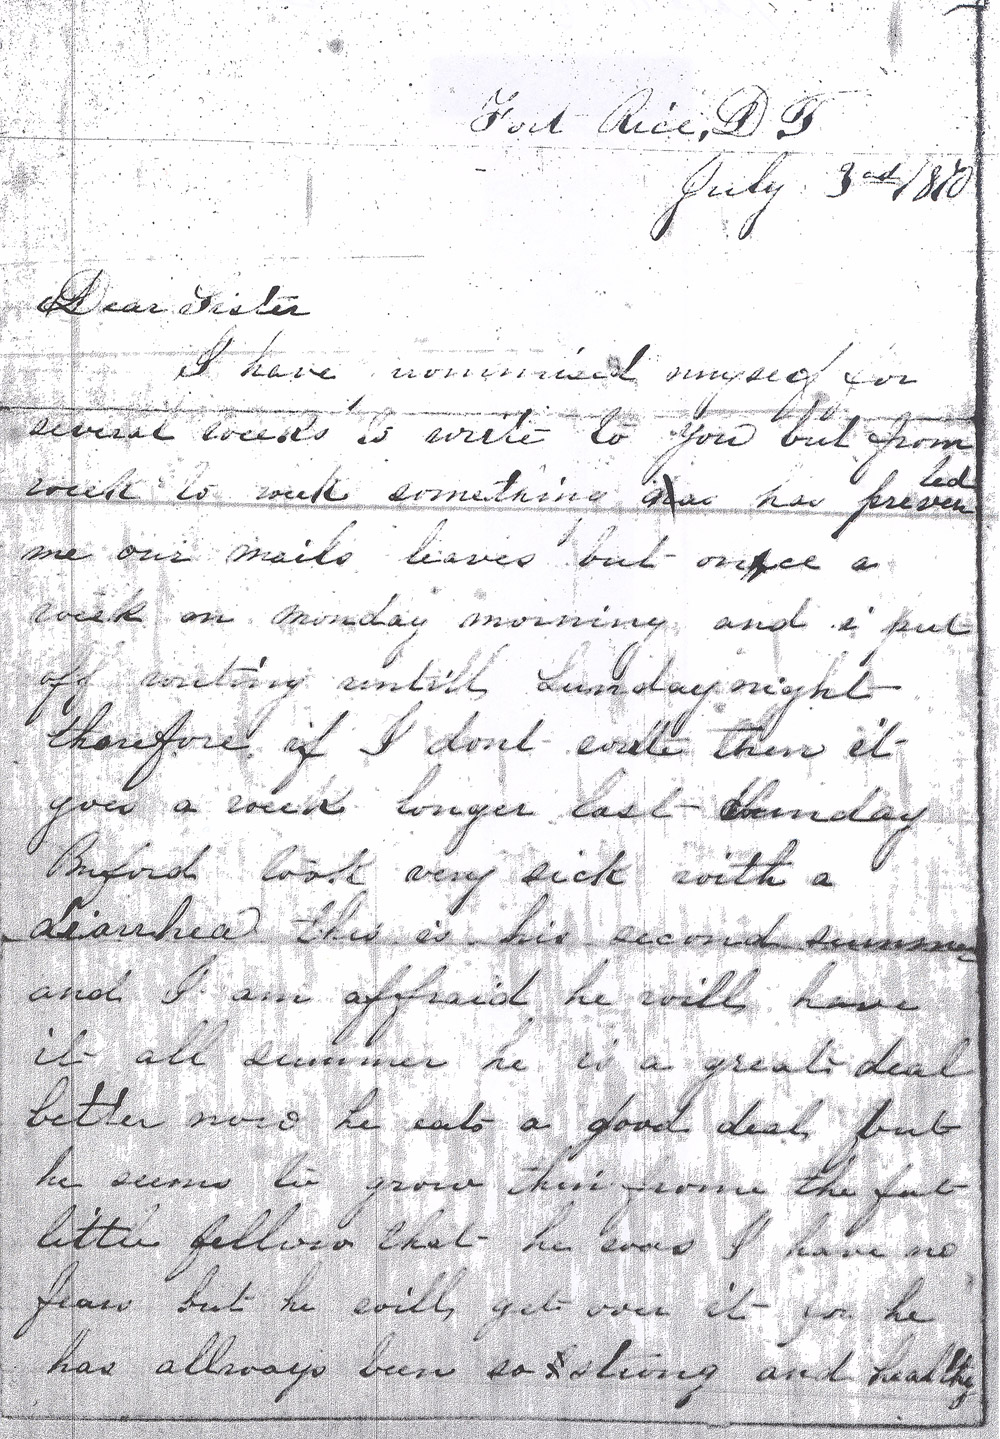 Fort Rice, D T
July 3rd 1870
Dear Sister
I have nommised myself for
several weeks to write to you but from
week to week something has has prevented
me our mails leaves but once a
week on monday morning and i put
off writing untill Sunday night
therefore if I dont write then it
goes a week longer last Sunday
Buford took very sick with a
diarrhea this is his second summer
and I am affraid he will have
it all summer he is a great deal
better now he eats a good deal but
he seems to grow thin frome the fat
little fellow that he was I have no
fears but he will get over it for he
has allways been so strong and healthy